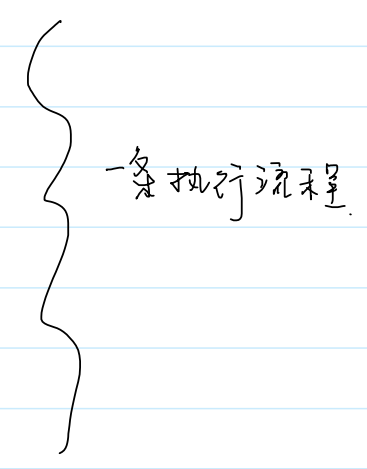 一条执行流程.